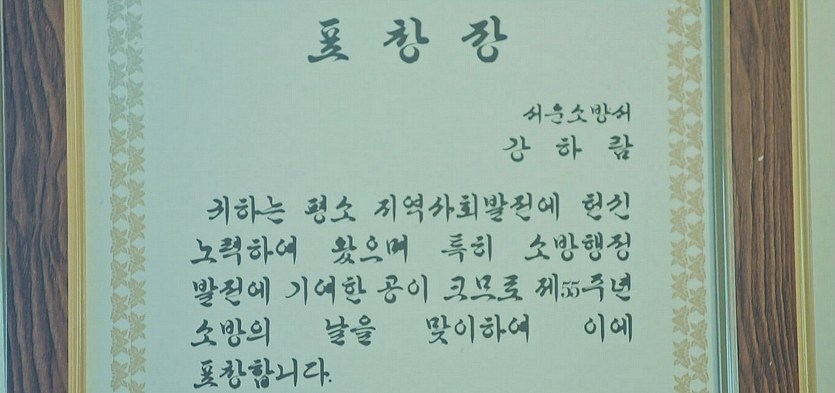 표 창 장
서운소방서
강 하 람
귀하는 평소 지역사회발전에 헌신
노력하여 왔으며 특히 소방행정
발전에 기여한 공이 크므로 제55주년
소방의 날을 맞이하여 이에
표창합니다.